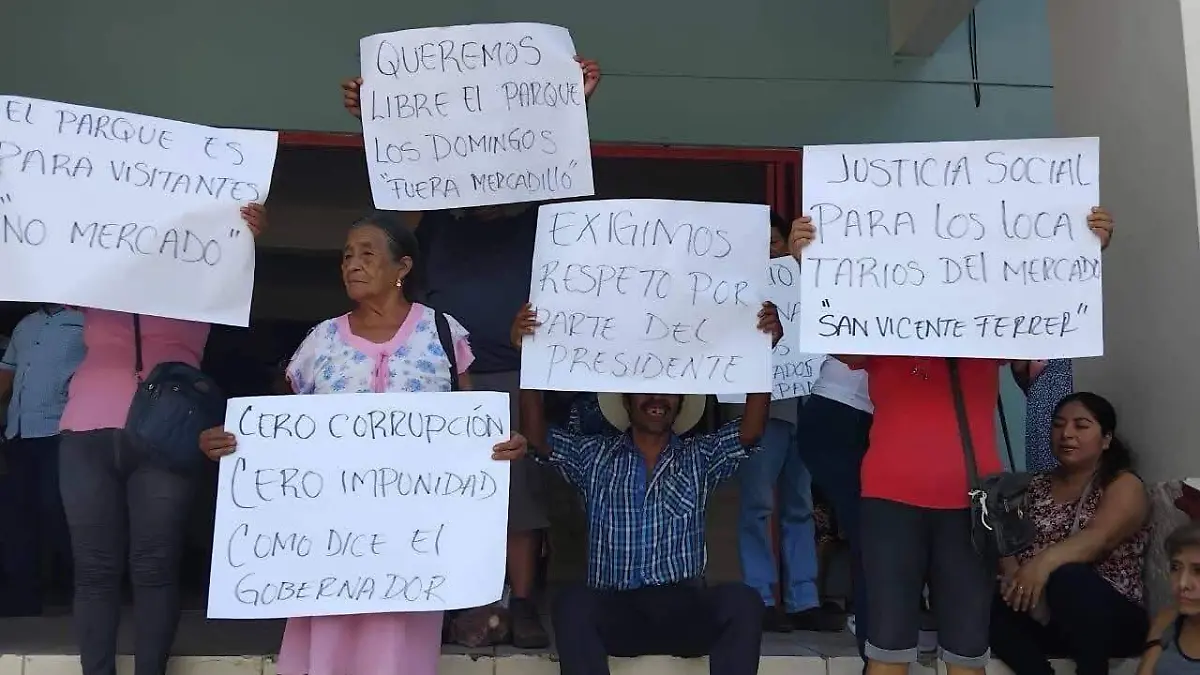 EL PARQUE ES
PARA VISITANTES
"NO MERCADO"
QUEREMOS
LIBRE El PARQUE
LOS DOMINGOS
"FUERA MERCADILLO"
CERO CORRUPCIÓN
CERO IMPUNIDAD
COMO DICE El
GOBERNADOR
EXIGIMOS
RESPETO POR
PARTE DEL
PRESIDENTE
JUSTICIA SOCIAL
PARA LOS LOCA
TARIOS DEl MERCADO
"SAN VICENTE FERRER"